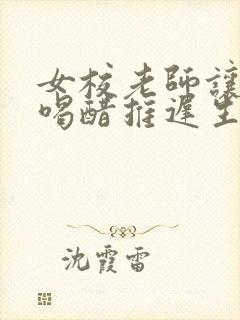 女校老師讓
喝醋推遲生
沈霞雷